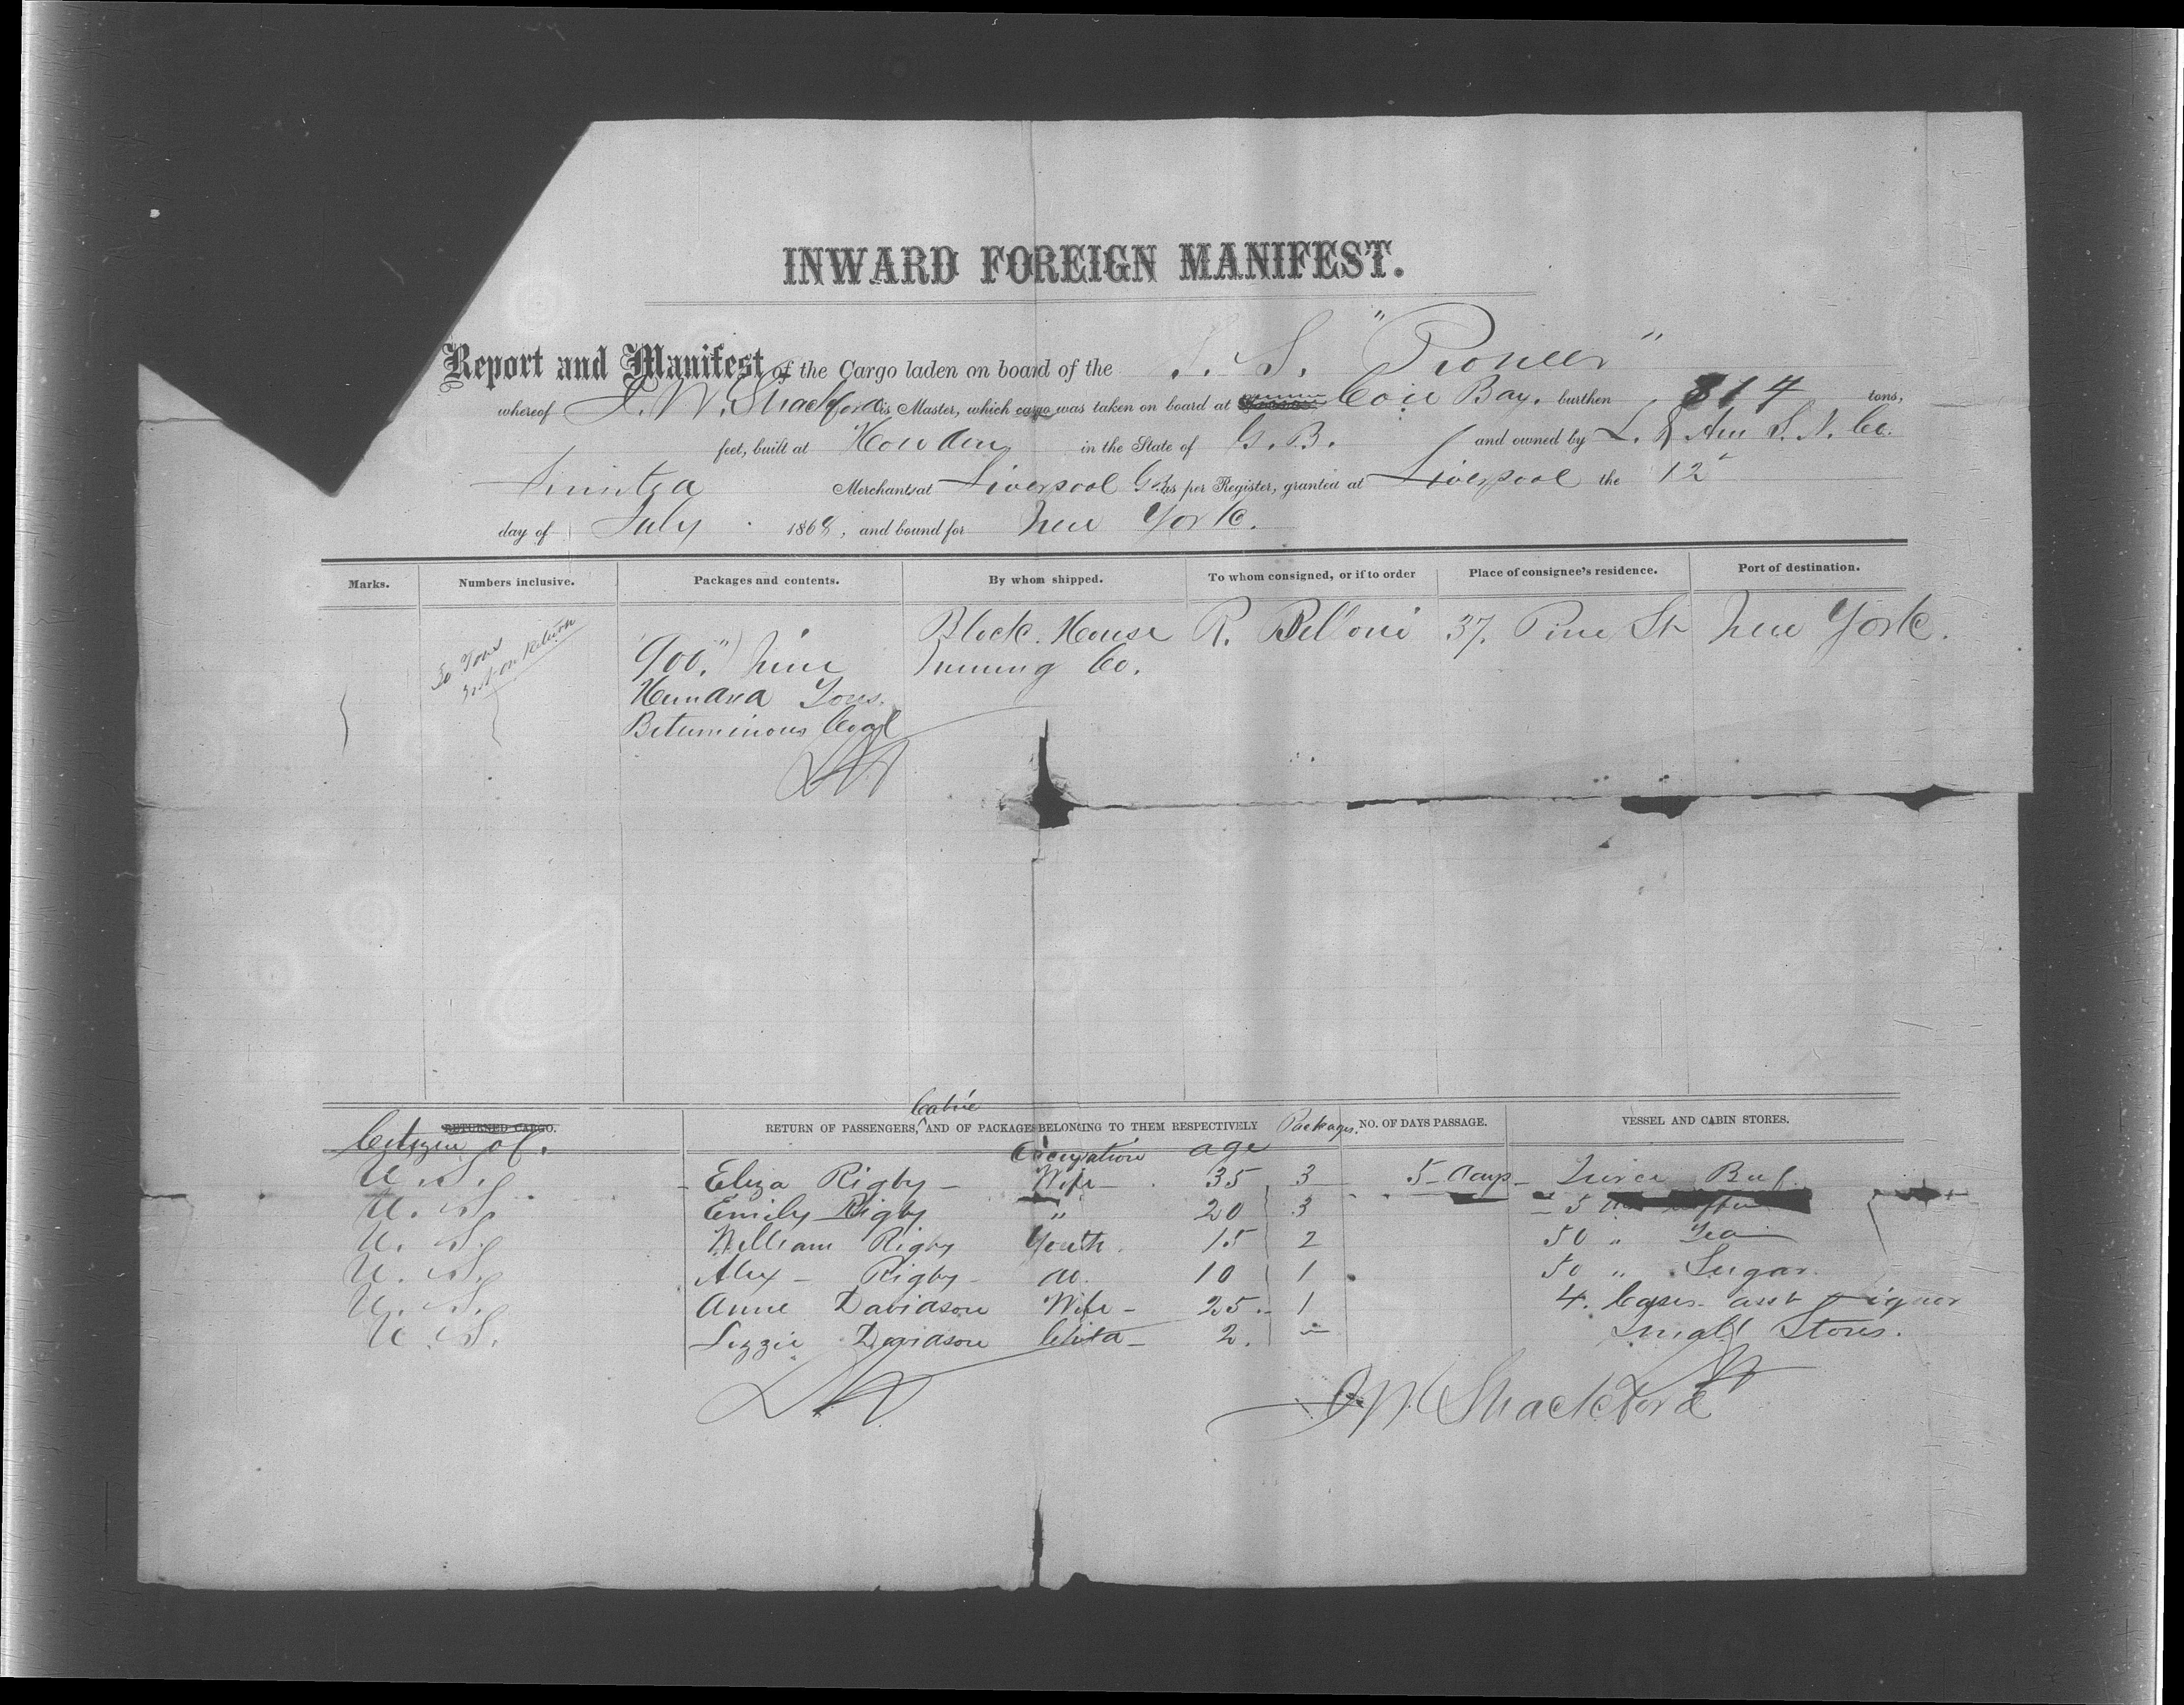 INWARD FOREIGN MANIFEST.
Report and Manifest of the Cargo laden on board of the S. S. "Pioneer"
whereof J. W. Shackford is Master, which cargo was taken on board at Cow Bay. burthen 814 tons,
feet, built at Howdon in the State of G. B. and owned by L. & Am S. N. Co.
Limited Merchants at Liverpool G.B. as per Register, granted at Liverpool the 12
day of July 1868, and bound for New York.
Marks. Numbers inclusive. Packages and contents. By whom shipped. To whom consigned, or if to order Place of consignee's residence. Port of destination.
Block House R. Belloni 37. Pine St New York.
900." Nine Mining Co.
Hundred Tons.
Bituminous Coal
Cabin
RETURNED CARGO. RETURN OF PASSENGERS, AND OF PACKAGES BELONGING TO THEM RESPECTIVELY Packages. NO. OF DAYS PASSAGE. VESSEL AND CABIN STORES.
Citizen of. Occupation age
U. S. Eliza Rigby Wife 35 3 5 days Tierce Beef
U. S. Emily Rigby " 20 3
U. S. William Rigby Youth 15 2 50 " Tea
U. S. Alex Rigby do. 10 1 50 " Sugar
U. S. Anne Davidson Wife 25 1 4. Cases asst Liquor
U. S. Lizzie Davidson Child 2. Small Stores.
J W Shackford